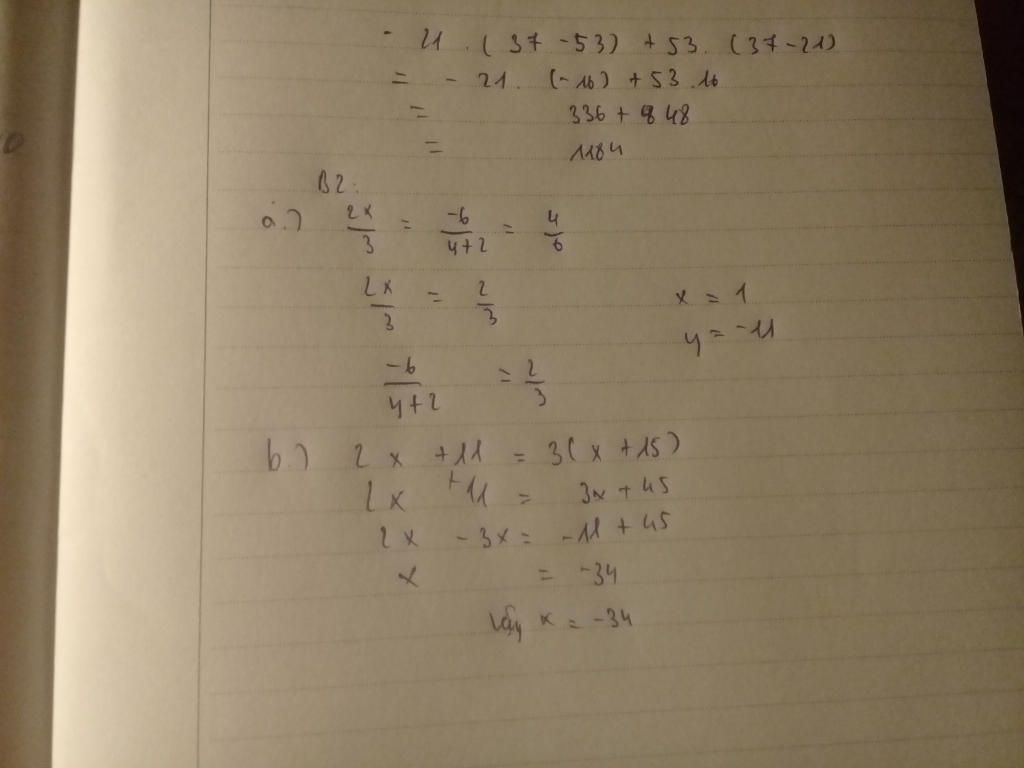 - 21 . (37 - 53) + 53 . (37 - 21)
= - 21 . (-16) + 53 . 16
= 336 + 848
= 1184
B2:
a.) 2x/3 = -6/y+2 = 4/6
2x/3 = 2/3 x = 1
y = -11
-6/y+2 = 2/3
b.) 2x + 11 = 3(x + 15)
2x + 11 = 3x + 45
2x - 3x = -11 + 45
x = -34
Vậy x = -34